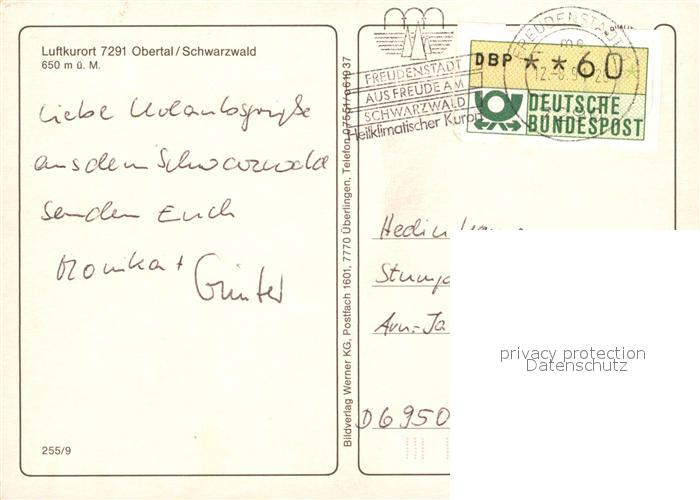 Luftkurort 7291 Obertal/Schwarzwald
650 m ü. M.
Liebe Urlaubsgrüße
aus dem Schwarzwald
senden Euch
Monika + Günter
255/9
Bildverlag Werner KG, Postfach 1601, 7770 Überlingen, Telefon 07551/
FREUDENSTADT
AUS FREUDE AM
SCHWARZWALD
Heilklimatischer Kurort
FREUDENSTADT
DBP **60
DEUTSCHE
BUNDESPOST
D 6950
privacy protection
Datenschutz